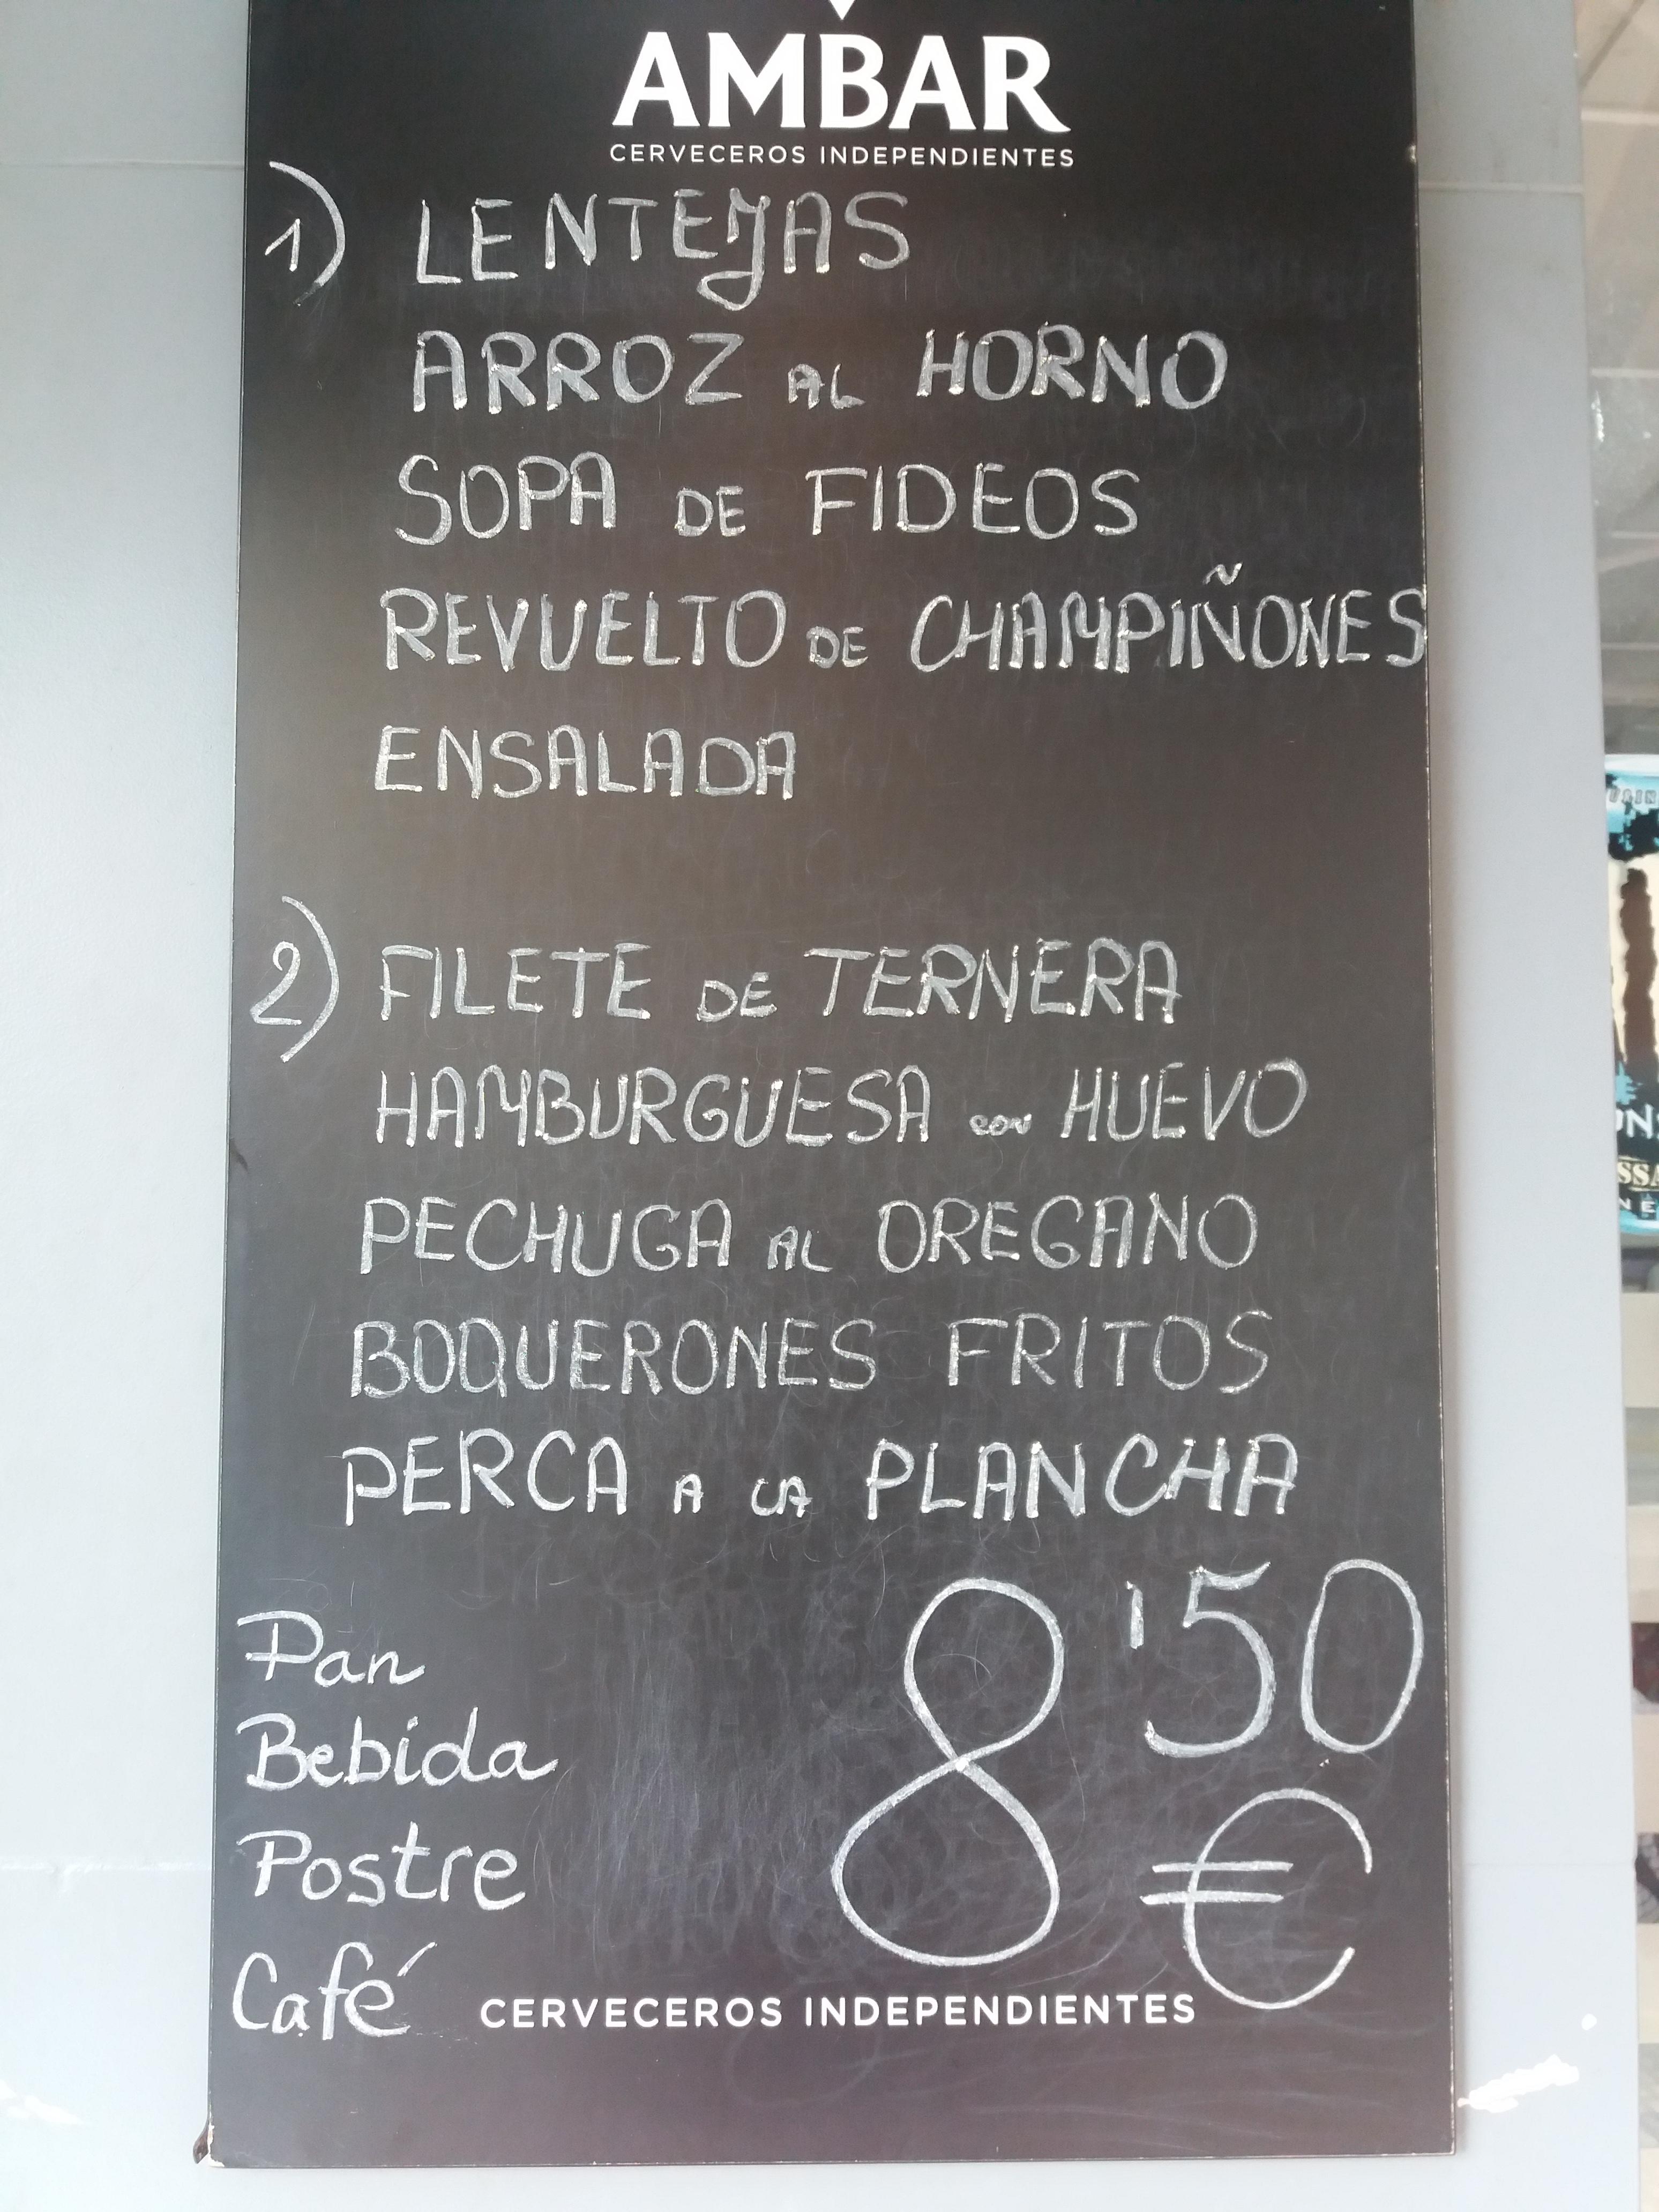 AMBAR
CERVECEROS INDEPENDIENTES
1) LENTEJAS
ARROZ AL HORNO
SOPA DE FIDEOS
REVUELTO DE CHAMPIÑONES
ENSALADA
2) FILETE DE TERNERA
HAMBURGUESA CON HUEVO
PECHUGA AL OREGANO
BOQUERONES FRITOS
PERCA A LA PLANCHA
Pan
Bebida
Postre
Café
8'50
€
CERVECEROS INDEPENDIENTES